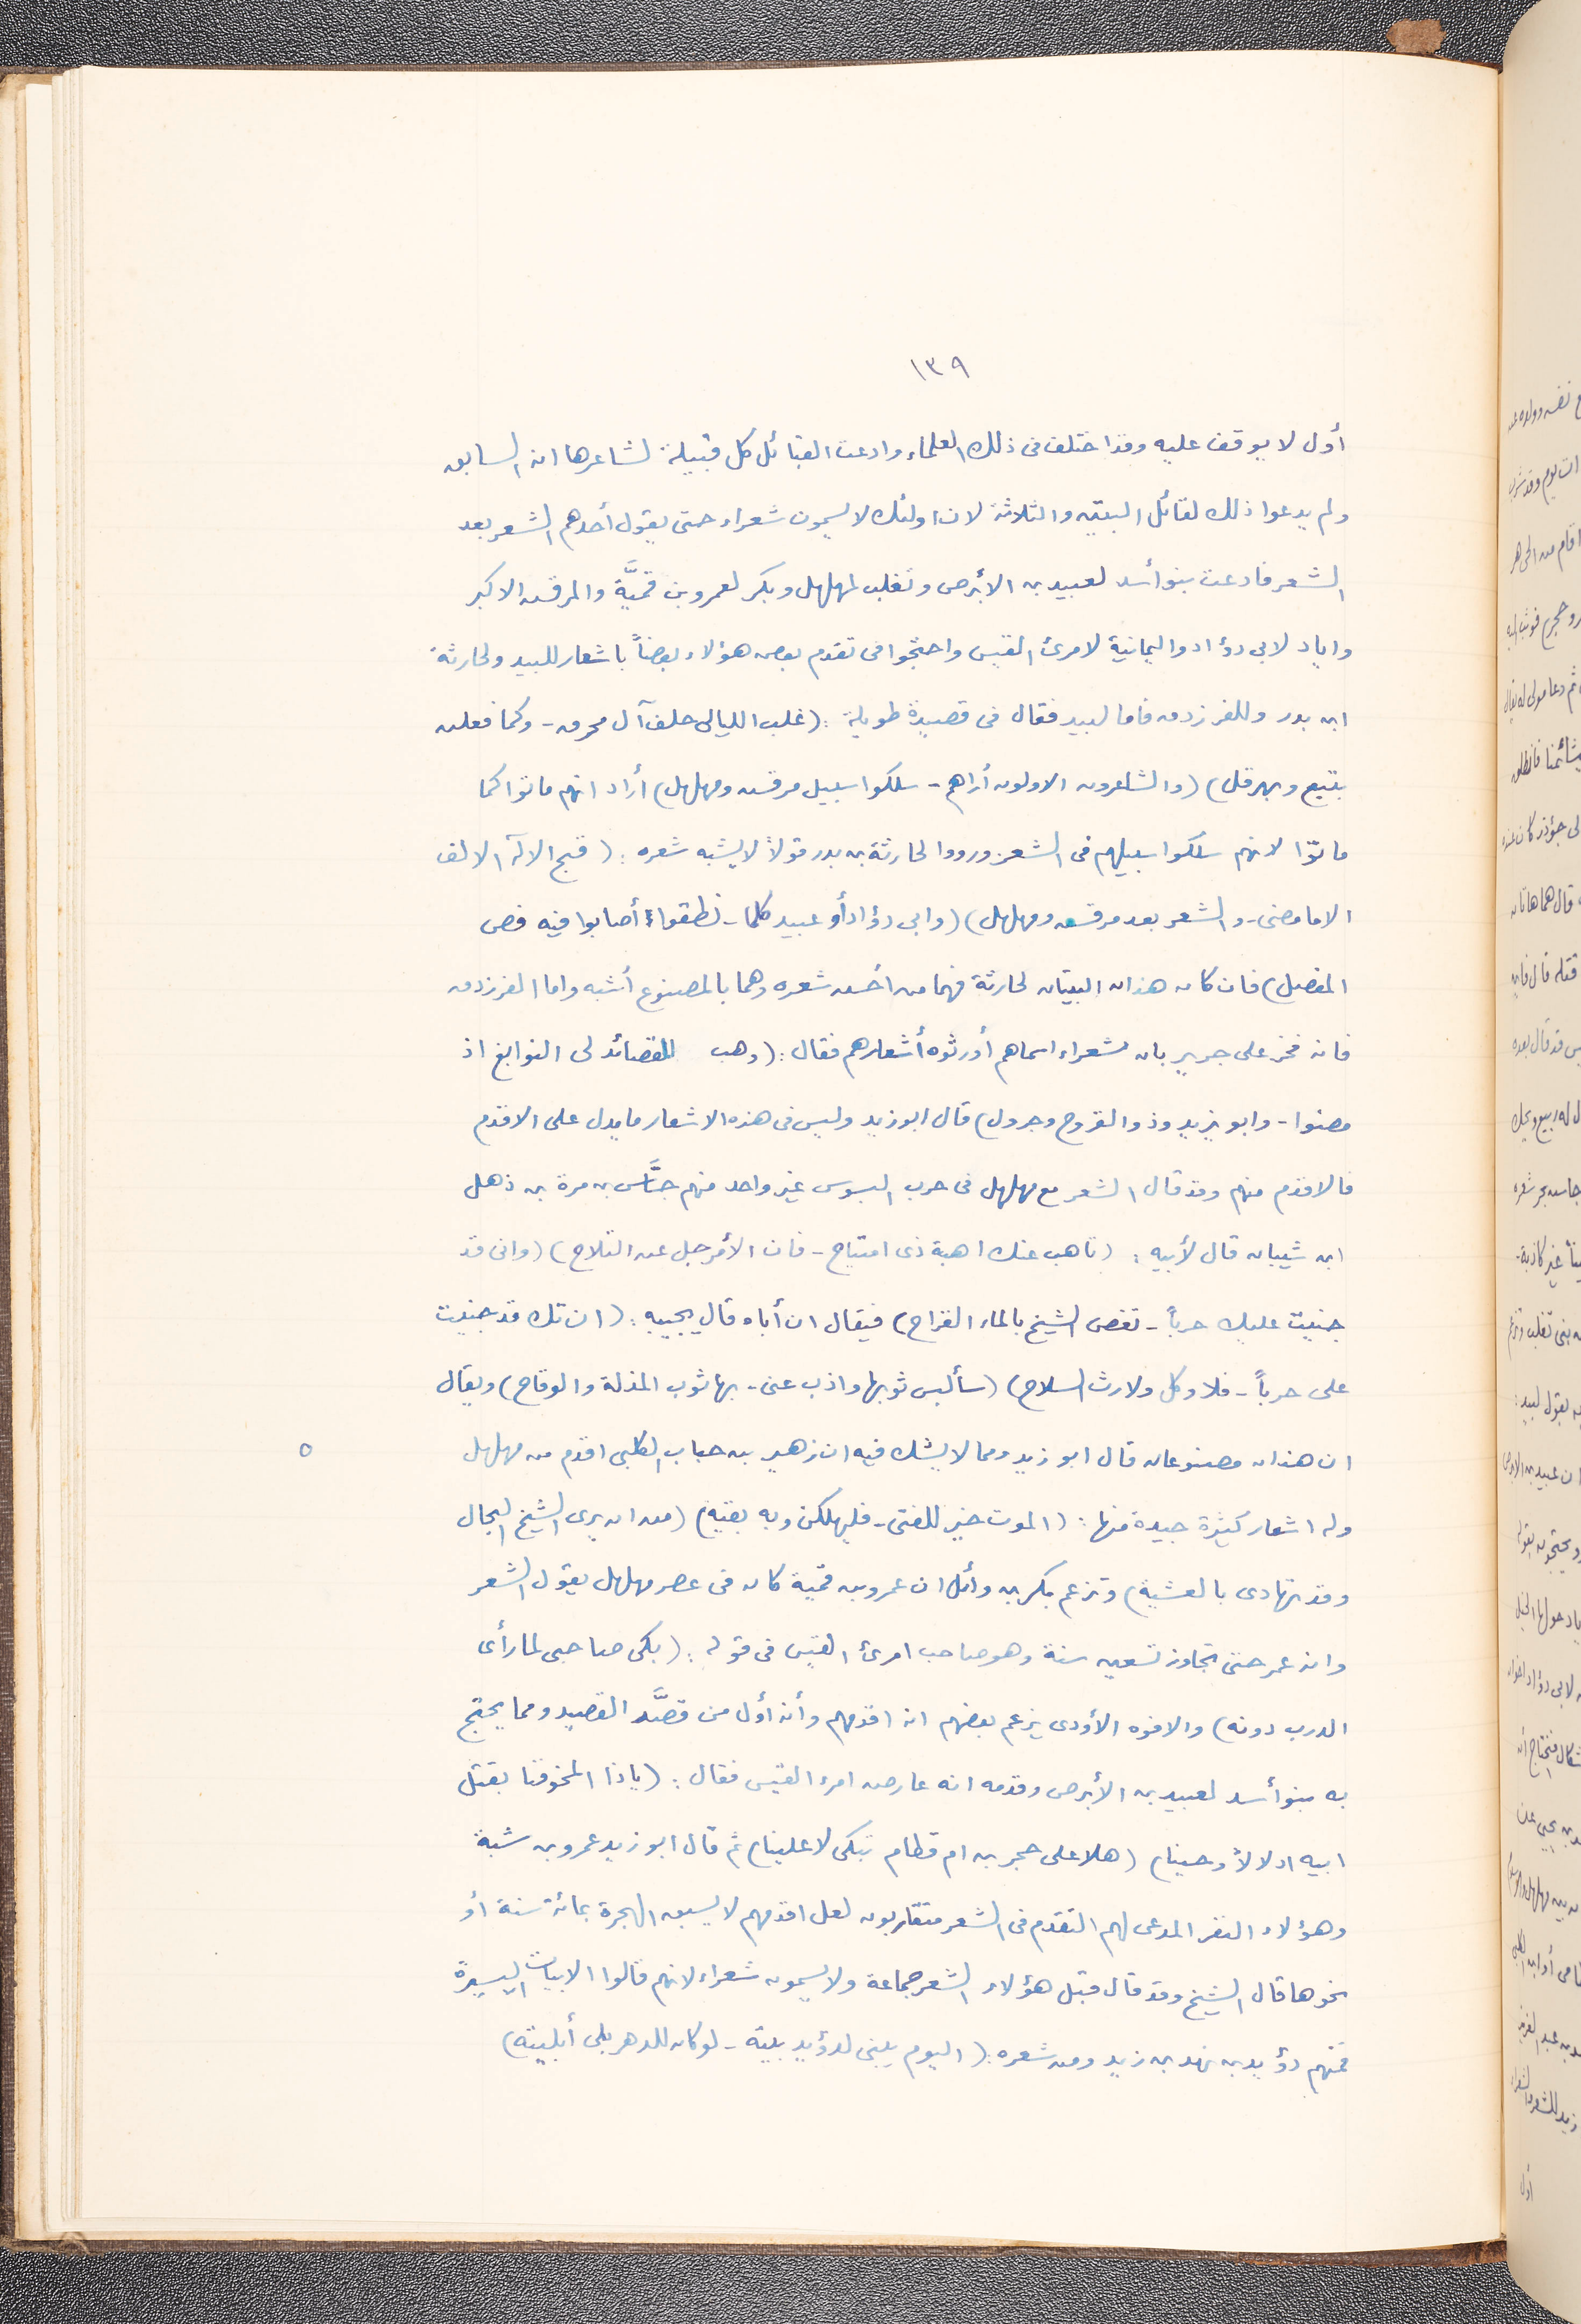 ١٣٩
أول لا يوقف عليه وقد اختلف فى ذلك العلماء وادعت القبائل كل قبيلة لشاعرها انه السابق
ولم يدعوا ذلك لقائل البيتين والثلاثة لان اولئك لا يسمون شعراء حتى يقول أحدهم الشعر بعد
الشعر فادعت بنو أسد لعبيد بن الأبرص وتغلب لمهلهل وبكر لعمرو بن قميَّة والمرقش الاكبر
واياد لابى دؤاد واليمانية لامرئ القيس واحتجوا فى تقدم بعض هؤلاء بعضاً باشعار للبيد ولحارثة
ابن بدر وللفرزدق فاما لبيد فقال فى قصيدة طويلة : (غلب الليالى خلف آل محرق - وكما فعلن
بتبع وبهرقل) (والشاعرون الاولون أراهم - سلكوا سبيل مرقش ومهلهل) أراد انهم ماتوا كما
ماتوا لانهم سلكوا سبيلهم فى الشعر ورووا لحارثة بن بدر قولاً لا يشبه شعره : (قبح الاله الالف
الا ما مضى - والشعر بعد مرقش ومهلهل) (وابى دؤاد أو عبيد كلما - نطقوا أصابوا فيه فص
المفصل) فان كان هذان البيتان لحارثة فهما من أخس شعره وهما بالمصنوع أشبه واما الفرزدق
فانه فخر على جرير بان شعراء اسماهم أورثوه أشعارهم فقال : (وهب القصائد لى النوابغ اذ
مضوا - وابو يزيد وذو القروح وجرول) قال ابو زيد وليس فى هذه الاشعار ما يدل على الاقدم
فالاقدم منهم وقد قال الشعر مع مهلهل فى حرب البسوس غير واحد منهم جسَّاس بن مرة بن ذهل
ابن شيبان قال لأبيه : (تاهب عنك اهبة ذى امتياح - فان الأمر جل عن التلاح) (وانى قد
جنيت عليك حرباً - تغص الشيخ بالماء القراح) فيقال ان أباه قال يجيبه : (ان تك قد جنيت
على حرباً - فلا وكل ولا رث السلاح) (سألبس ثوبها واذب عنى - بها ثوب المذلة والوقاح) ويقال
ان هذان مصنوعان قال ابو زيد ومما لا يشك فيه ان زهير بن جناب الكلبى اقدم من مهلهل
وله اشعار كثيرة جيدة منها : (الموت خير للفتى - فليهلكن وبه بقيه) (من ان يرى الشيخ البجال
وقد يتهادى بالعشية) وتزعم بكر بن وائل ان عمرو بن قمية كان فى عصر مهلهل يقول الشعر
وانه عمر حتى تجاوز تسعين سنة وهو صاحب امرئ القيس فى قوله : (بكى صاحبى لما رأى
الدرب دونه) والافوه الأودى يزعم بعضهم انه اقدمهم وأنه أول من قصَّد القصيد ومما يحتج
به بنو أسد لعبيد بن الأبرص وقدمه انه عارض امرء القيس فقال : (ياذا المخوفنا بقتل
ابيه اذلالاً وحينا) (هلا على حجر بن ام قطام تبكى لا علينا) ثم قال ابو زيد عمرو بن شبة
وهؤلاء النفر المدعى لهم التقدم فى الشعر متقاربون لعل اقدمهم لا يسبق الهجرة بمائة سنة أو
نحوها قال الشيخ وقد قال قبل هؤلاء الشعر جماعة ولا يسمون شعراء لانهم قالوا الابيات اليسيرة
فمنهم دؤيد بن نهد بن زيد ومن شعره : (اليوم يبنى لدؤيد بيته - لو كان للدهر بلى أبليته)